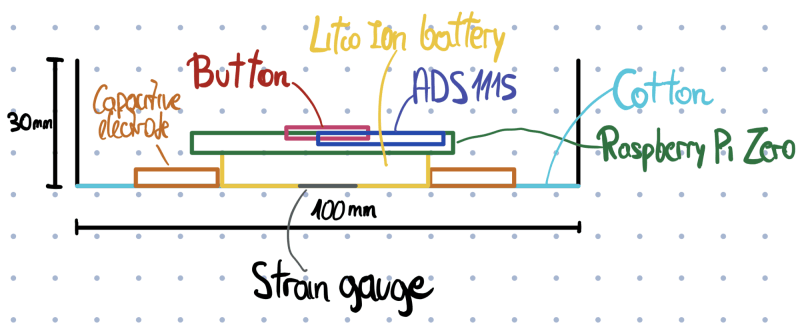 Litio Ion battery
Button
ADS 1115
Cotton
Capacitive
electrode
30mm
Raspberry Pi Zero
100mm
Strain gauge